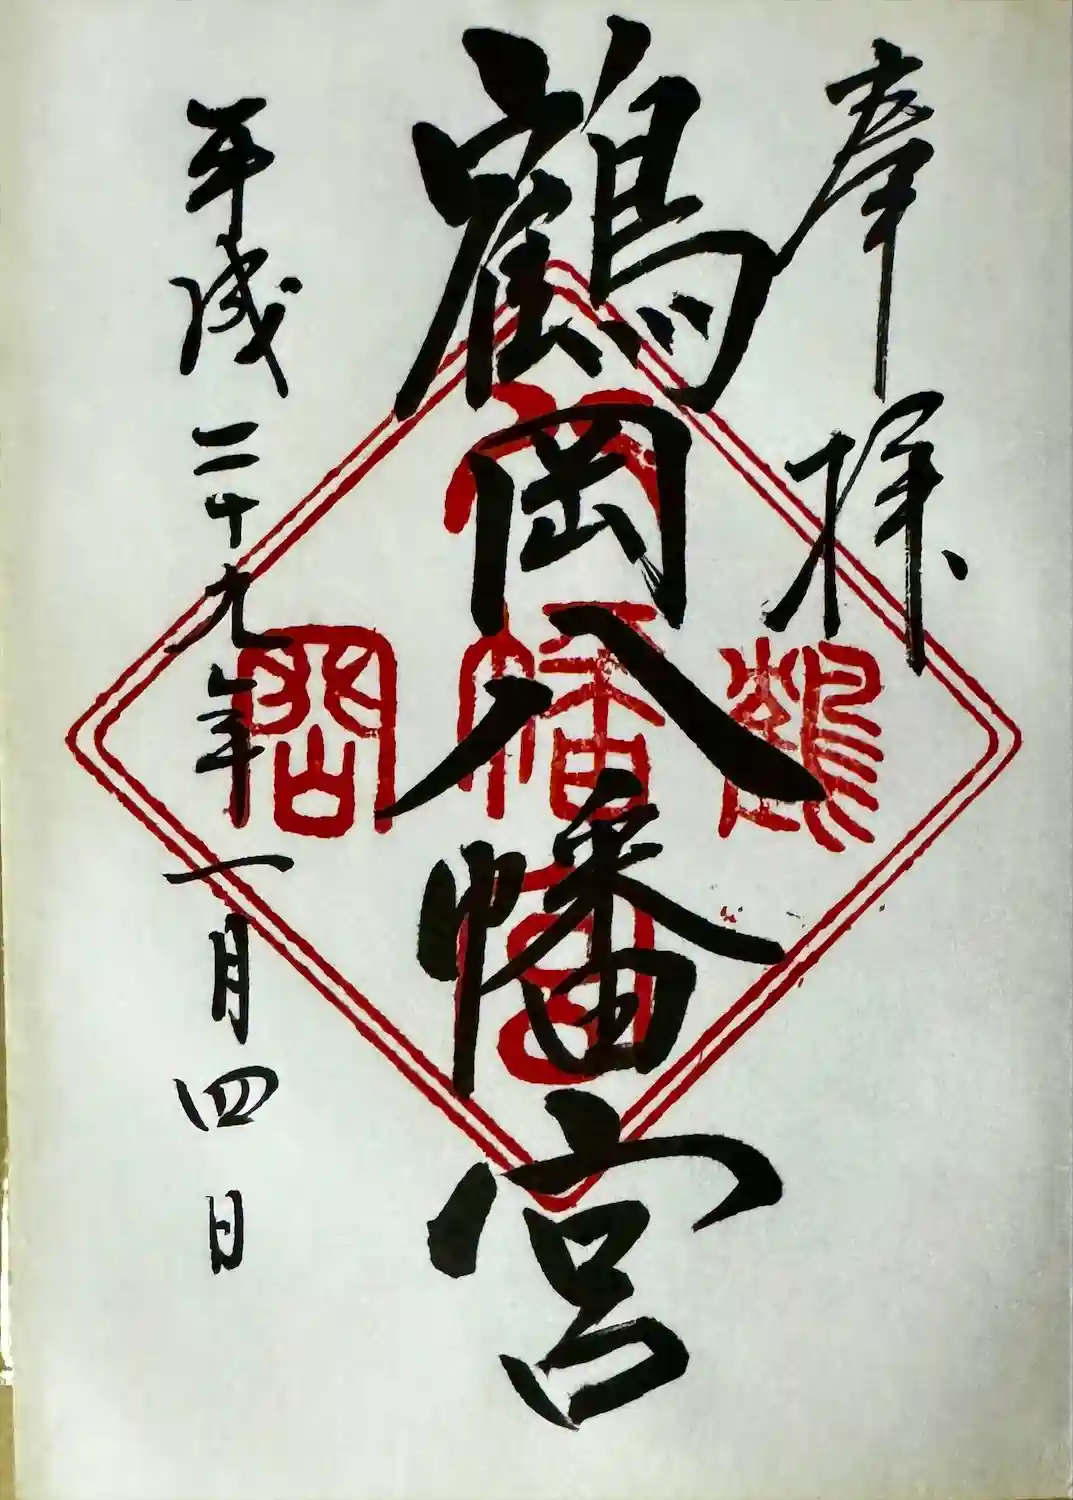 奉拝
鶴岡八幡宮
平成二十九年一月四日
鶴
八幡宮
岡